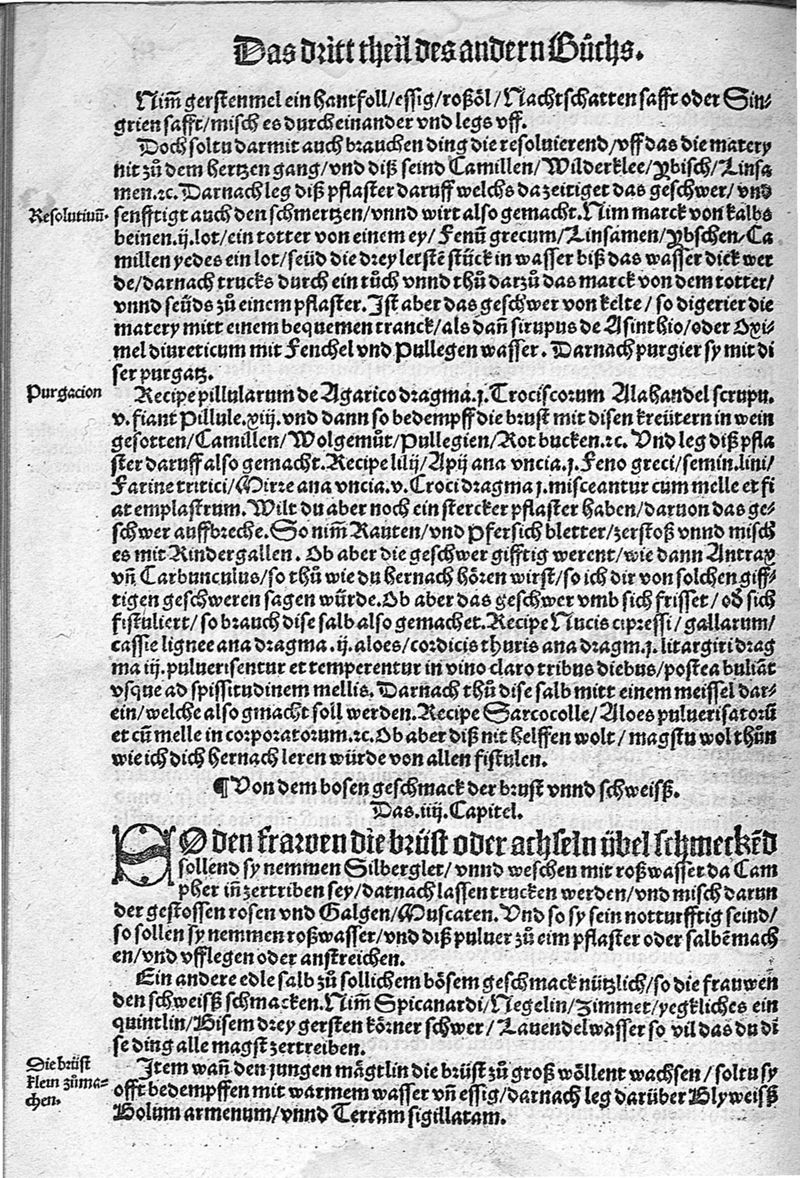 Das dritt theil des andern Bůchs.
Nim̃ gerstenmel ein hantfoll/essig/roßöl/Nachtschatten safft oder Sin-
grien safft/misch es durch einander vnd legs vff.
Doch soltu darmit auch brauchen ding die resoluierend/vff das die matery
nit zů dem hertzen gang/vnd diß seind Camillen/Wilderklee/Ybisch/Linsa
men.ꝛc. Darnach leg diß pflaster daruff welchs da zeitiget das geschwer/vnd
Resolutiuũ.
senfftigt auch den schmertzen/vnnd wirt also gemacht. Nim marck von kalbs
beinen.ij.lot/ein totter von einem ey/Fenũ grecum/Linsamen/Ybschen-Ca
millen yedes ein lot/seüd die drey lerstẽ stück in wasser biß das wasser dick wer
de/darnach trucks durch ein tůch vnnd thů darzů das marck von dem totter/
vnnd seüds zů einem pflaster. Ist aber das geschwer von kelte/so digerier die
matery mitt einem bequemen tranck/als dañ sirupus de Asinthio/oder Oxi-
mel diureticum mit Fenchel vnd Pullegen wasser. Darnach purgier sy mit di
ser purgatz.
Purgacion
Recipe pillularum de Agarico dragma.j. Trociscorum Alahandel scrupu.
v. fiant Pillule.xiij.vnd dann so bedempff die brust mit disen kreütern in wein
gesotten/Camillen/Wolgemůt/Pullegien/Rot bucken.ꝛc. Vnd leg diß pfla
ster daruff also gemacht. Recipe lilij/Apij ana vncia.j. Feno greci/semin.lini/
Farine tritici/Mirre ana vncia.v. Croci dragma j.misceantur cum melle et fi
at emplastrum. Wilt du aber noch ein stercker pflaster haben/daruon das ge-
schwer auffbreche. So nim̃ Rauten/vnd Pfersich bletter/zerstoß vnnd misch
es mit Rindergallen. Ob aber die geschwer gifftig werent/wie dann Antrax
vñ Carbunculus/so thů wie du hernach hören wirst/so ich dir von solchen giff-
tigen geschweren sagen würde. Ob aber das geschwer vmb sich frisset/od̃ sich
fistuliert/so brauch dise salb also gemachet. Recipe Nucis cipressi/gallarum/
cassie lignee ana dragma.ij.aloes/cordicis thuris ana dragm.j.litargiri drag
ma iij.puluerisentur et temperentur in vino claro tribus diebus/postea buliãt
vsque ad spissitudinem mellis. Darnach thů dise salb mitt einem meissel dar-
ein/welche also gmacht soll werden. Recipe Sarcocolle/Aloes puluerisatorũ
et cũ melle in corporatorum.ꝛc. Ob aber diß nit helffen wolt/magstu wol thůn
wie ich dich hernach leren würde von allen fistulen.
¶Von dem bosen geschmack der brust vnnd schweiß.
Das.iiij.Capitel.
SO den frawen die brüst oder achseln übel schmeckẽd
sollend sy nemmen Silberglet/vnnd weschen mit roßwasser da Cam
pher iñ zertriben sey/darnach lassen trucken werden/vnd misch darun
der gestossen rosen vnd Galgen/Muscaten. Vnd so sy sein notturfftig seind/
so sollen sy nemmen roßwasser/vnd diß puluer zů eim pflaster oder salbẽ mach
en/vnd vfflegen oder anstreichen.
Ein andere edle salb zů sollichem bösem geschmack nützlich/so die frauwen
den schweiß schmacken. Nim̃ Spicanardi/Negelin/Zimmet/yegkliches ein
quintlin/Bisem drey gersten körner schwer/Lauendelwasser so vil das du di
se ding alle magst zertreiben.
Die brüst
klein zůma-
chen.
Item wañ den jungen mägtlin die brüst zů groß wöllent wachsen/soltu sy
offt bedempffen mit warmem wasser vñ essig/darnach leg darüber Blyweiß
Bolum armenum/vnnd Terram sigillatam.